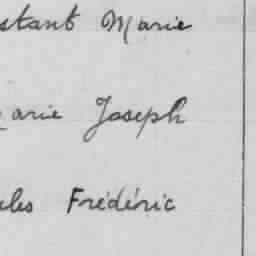 stant Marie
arie Joseph
les Frédéric